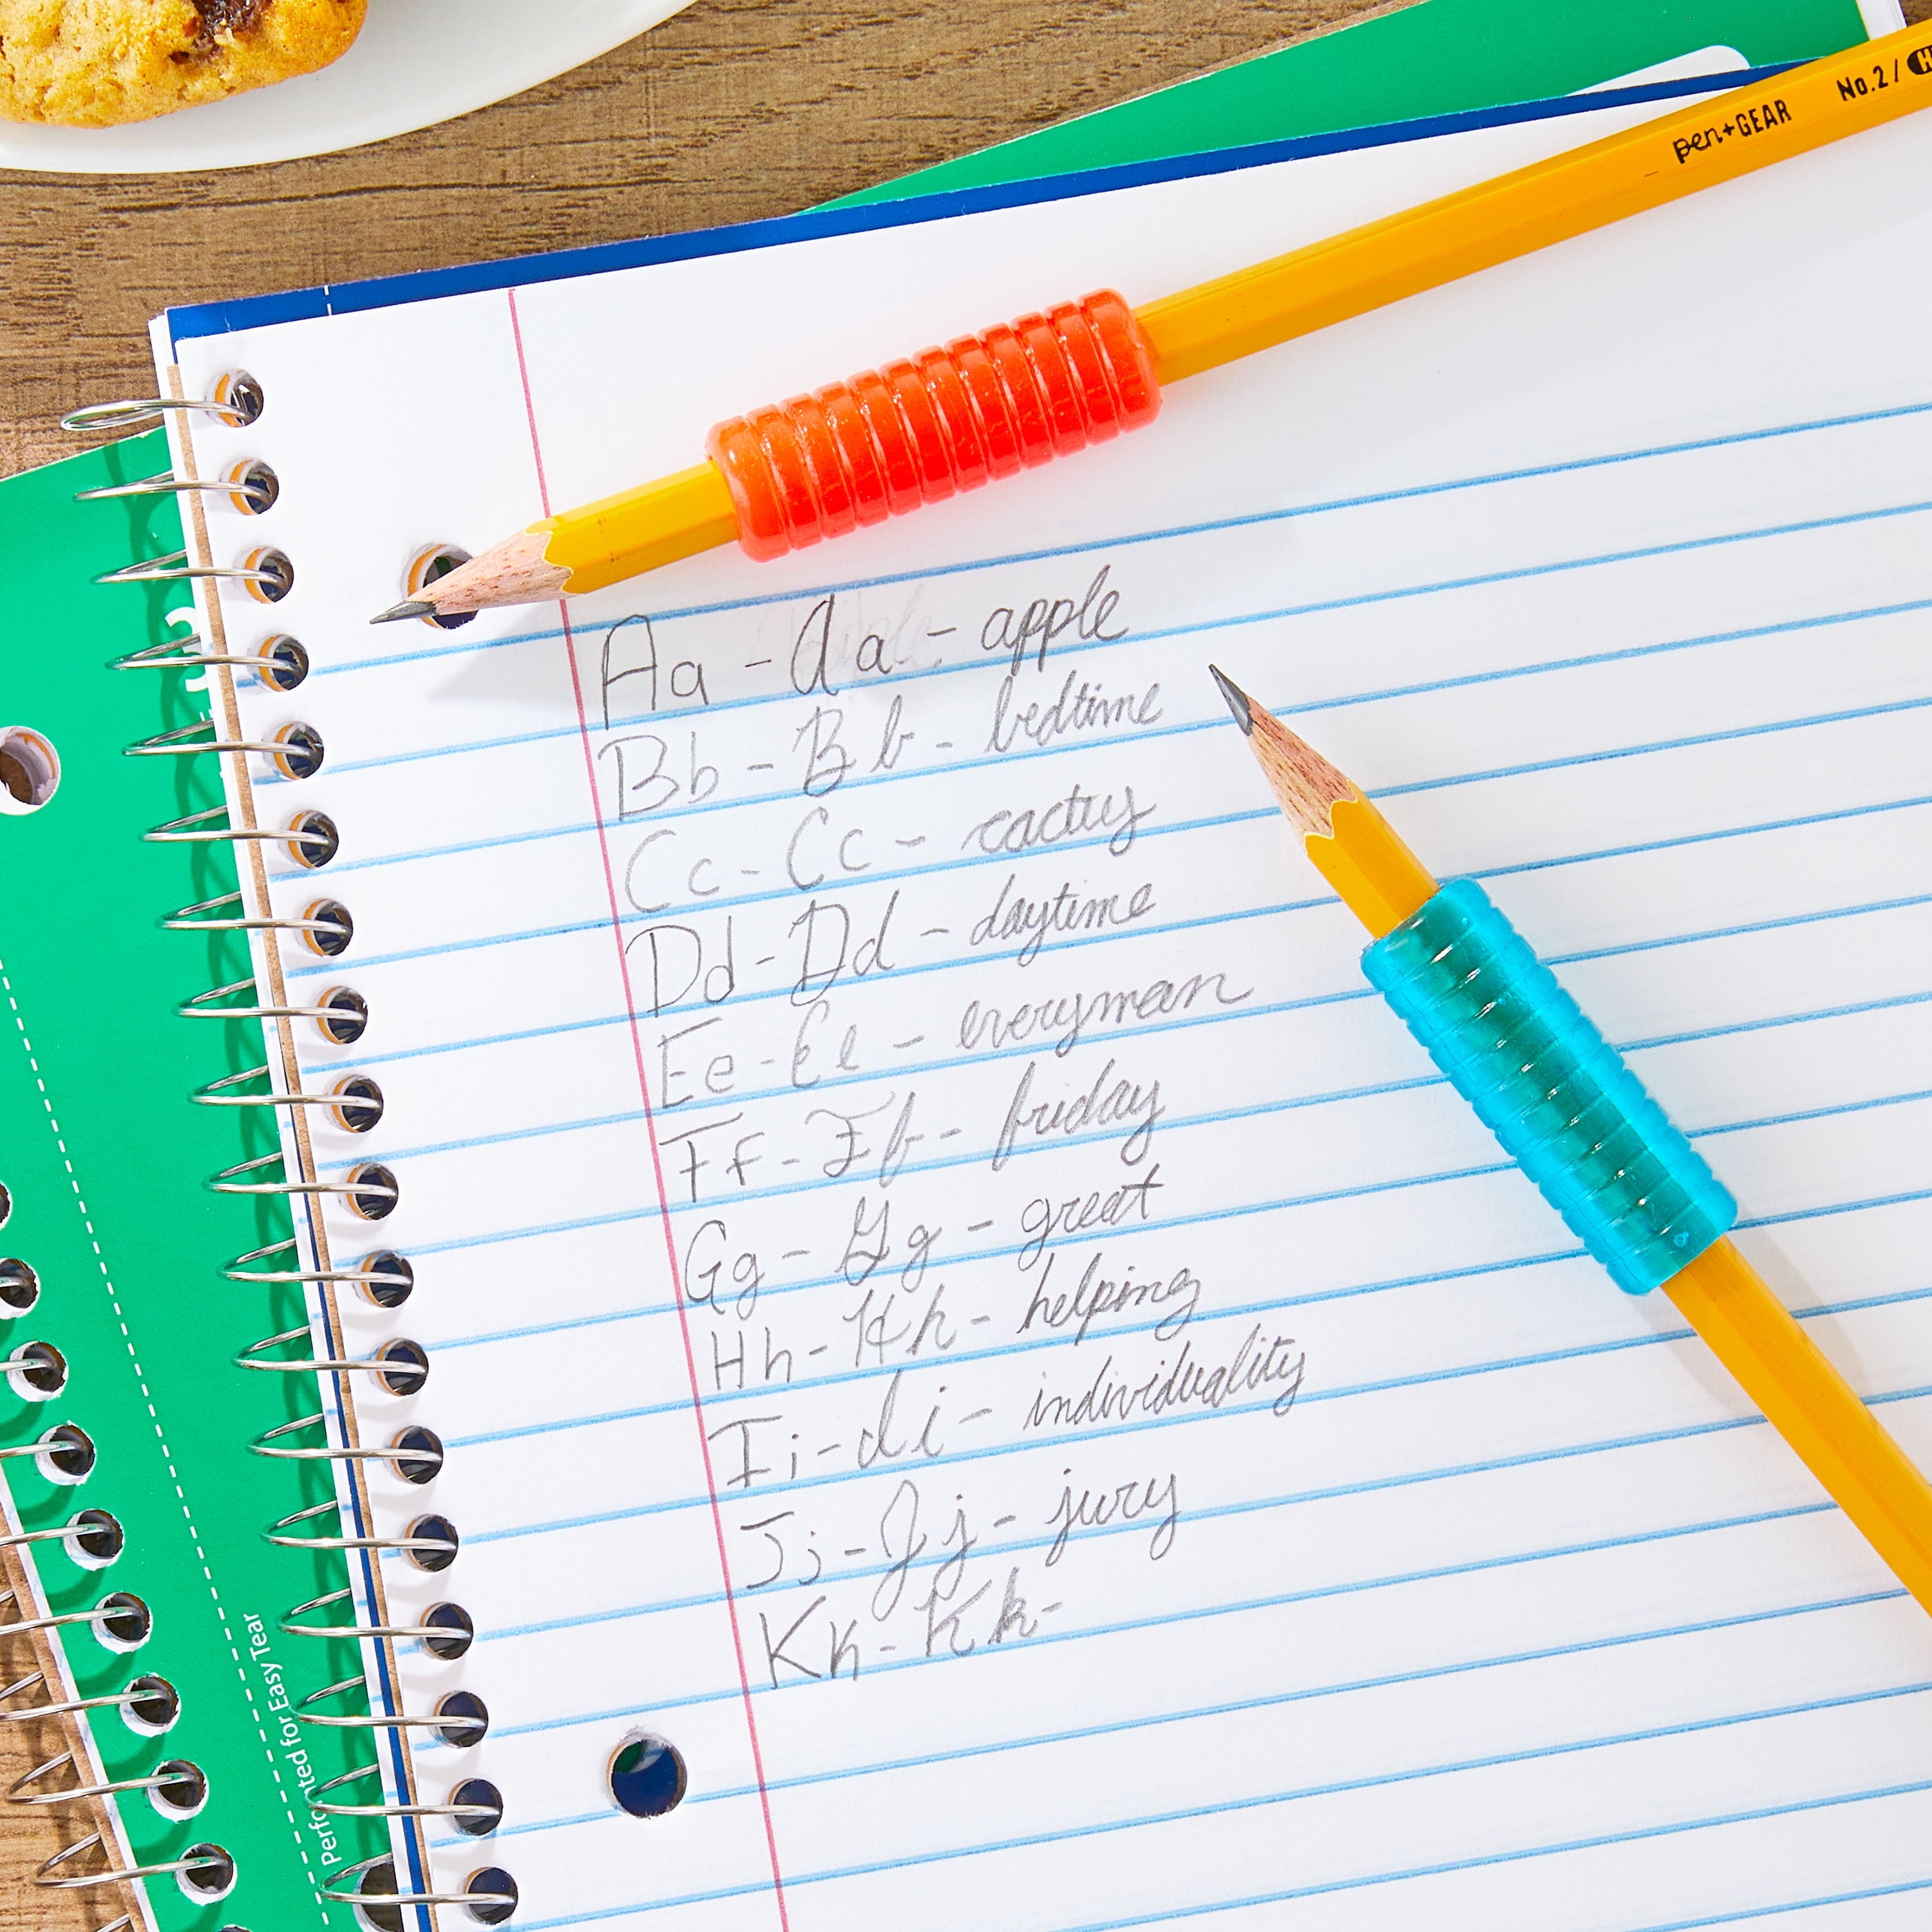 pen+GEAR No.2/
Aa - Aa - apple
Bb - Bb - bedtime
Cc - Cc - cactus
Dd - Dd - daytime
Ee - Ee - everyman
Ff - Ff - friday
Gg - Gg - great
Hh - Hh - helping
Ii - Ii - individuality
Jj - Jj - jury
Kk - Kk -
Perforated for Easy Tear